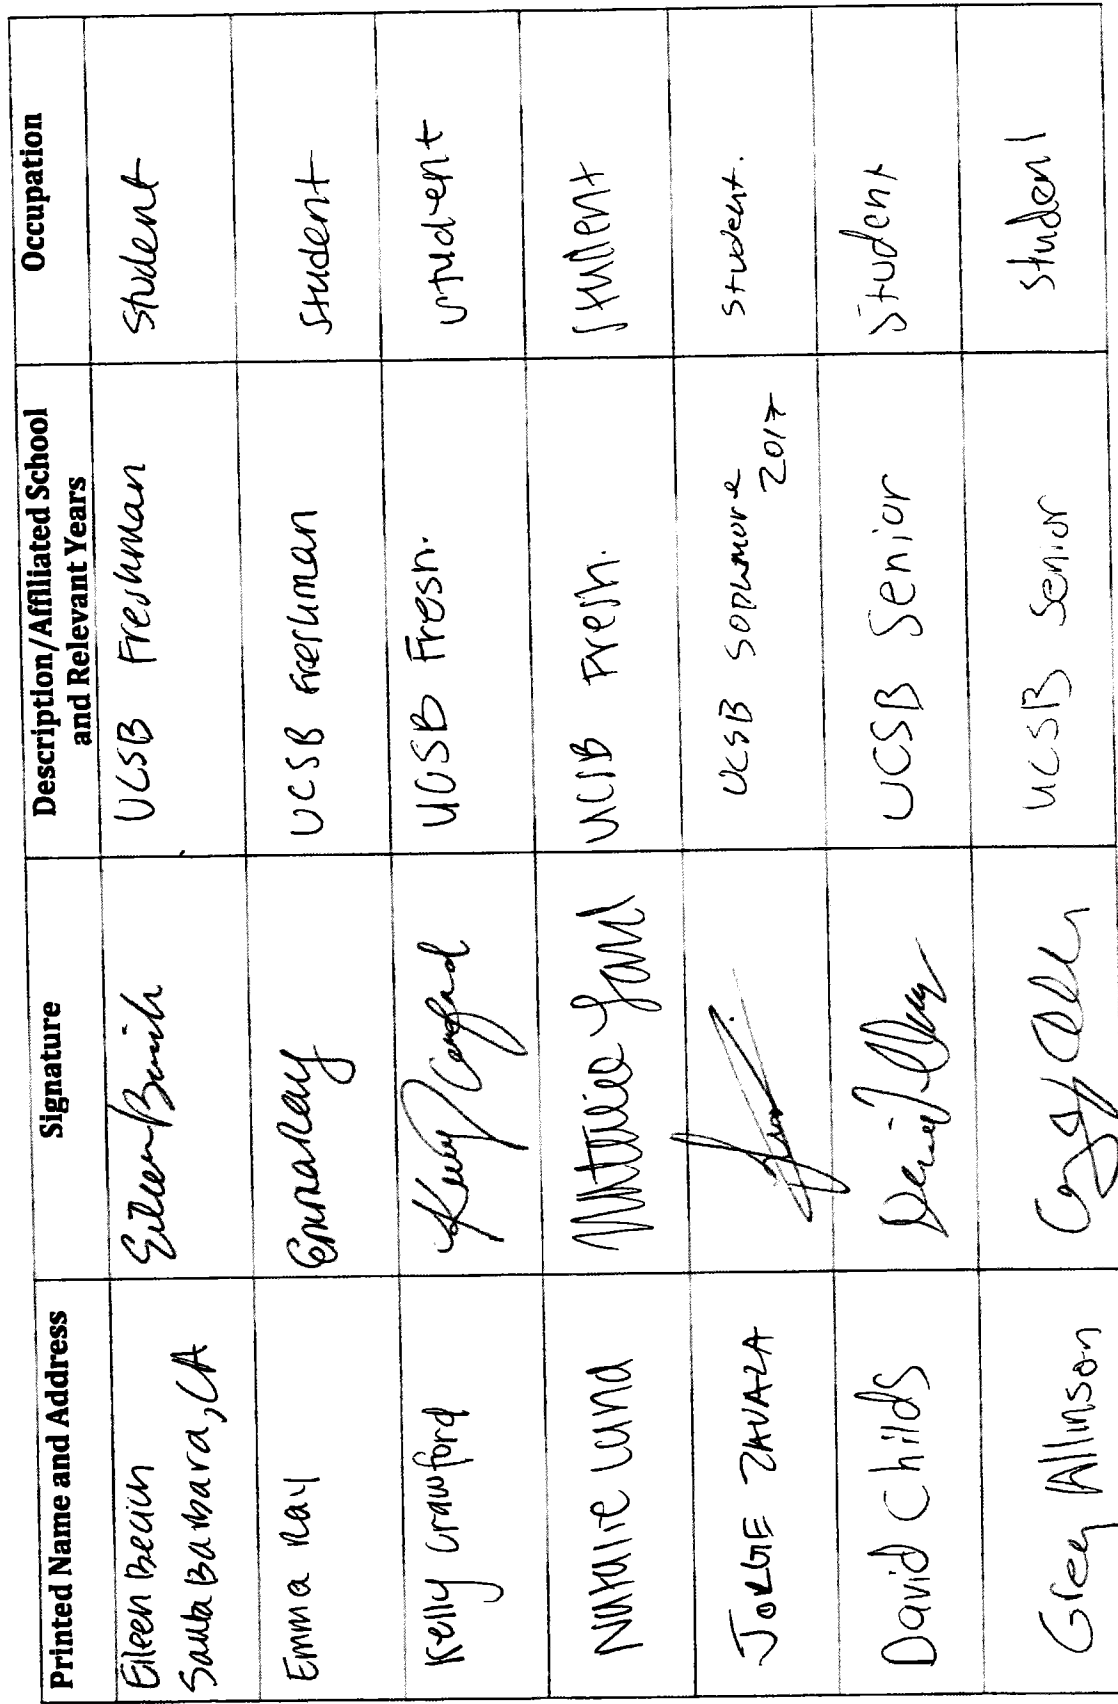 Printed Name and Address Signature Description/Affiliated School and Relevant Years Occupation
Eileen Beaich
Santa Barbara, CA
UCSB Freshman
Student
Emma Ray
Emma Ray
UCSB Freshman
Student
Kelly Crawford
Kelly Crawford
UCSB Fresh.
student
Natalie Lund
Natalie Lund
UCSB Fresh.
student
JORGE ZAVALA
UCSB Sophmore
2017
student.
David Childs
UCSB Senior
Student
Greg Allinson
UCSB Senior
student